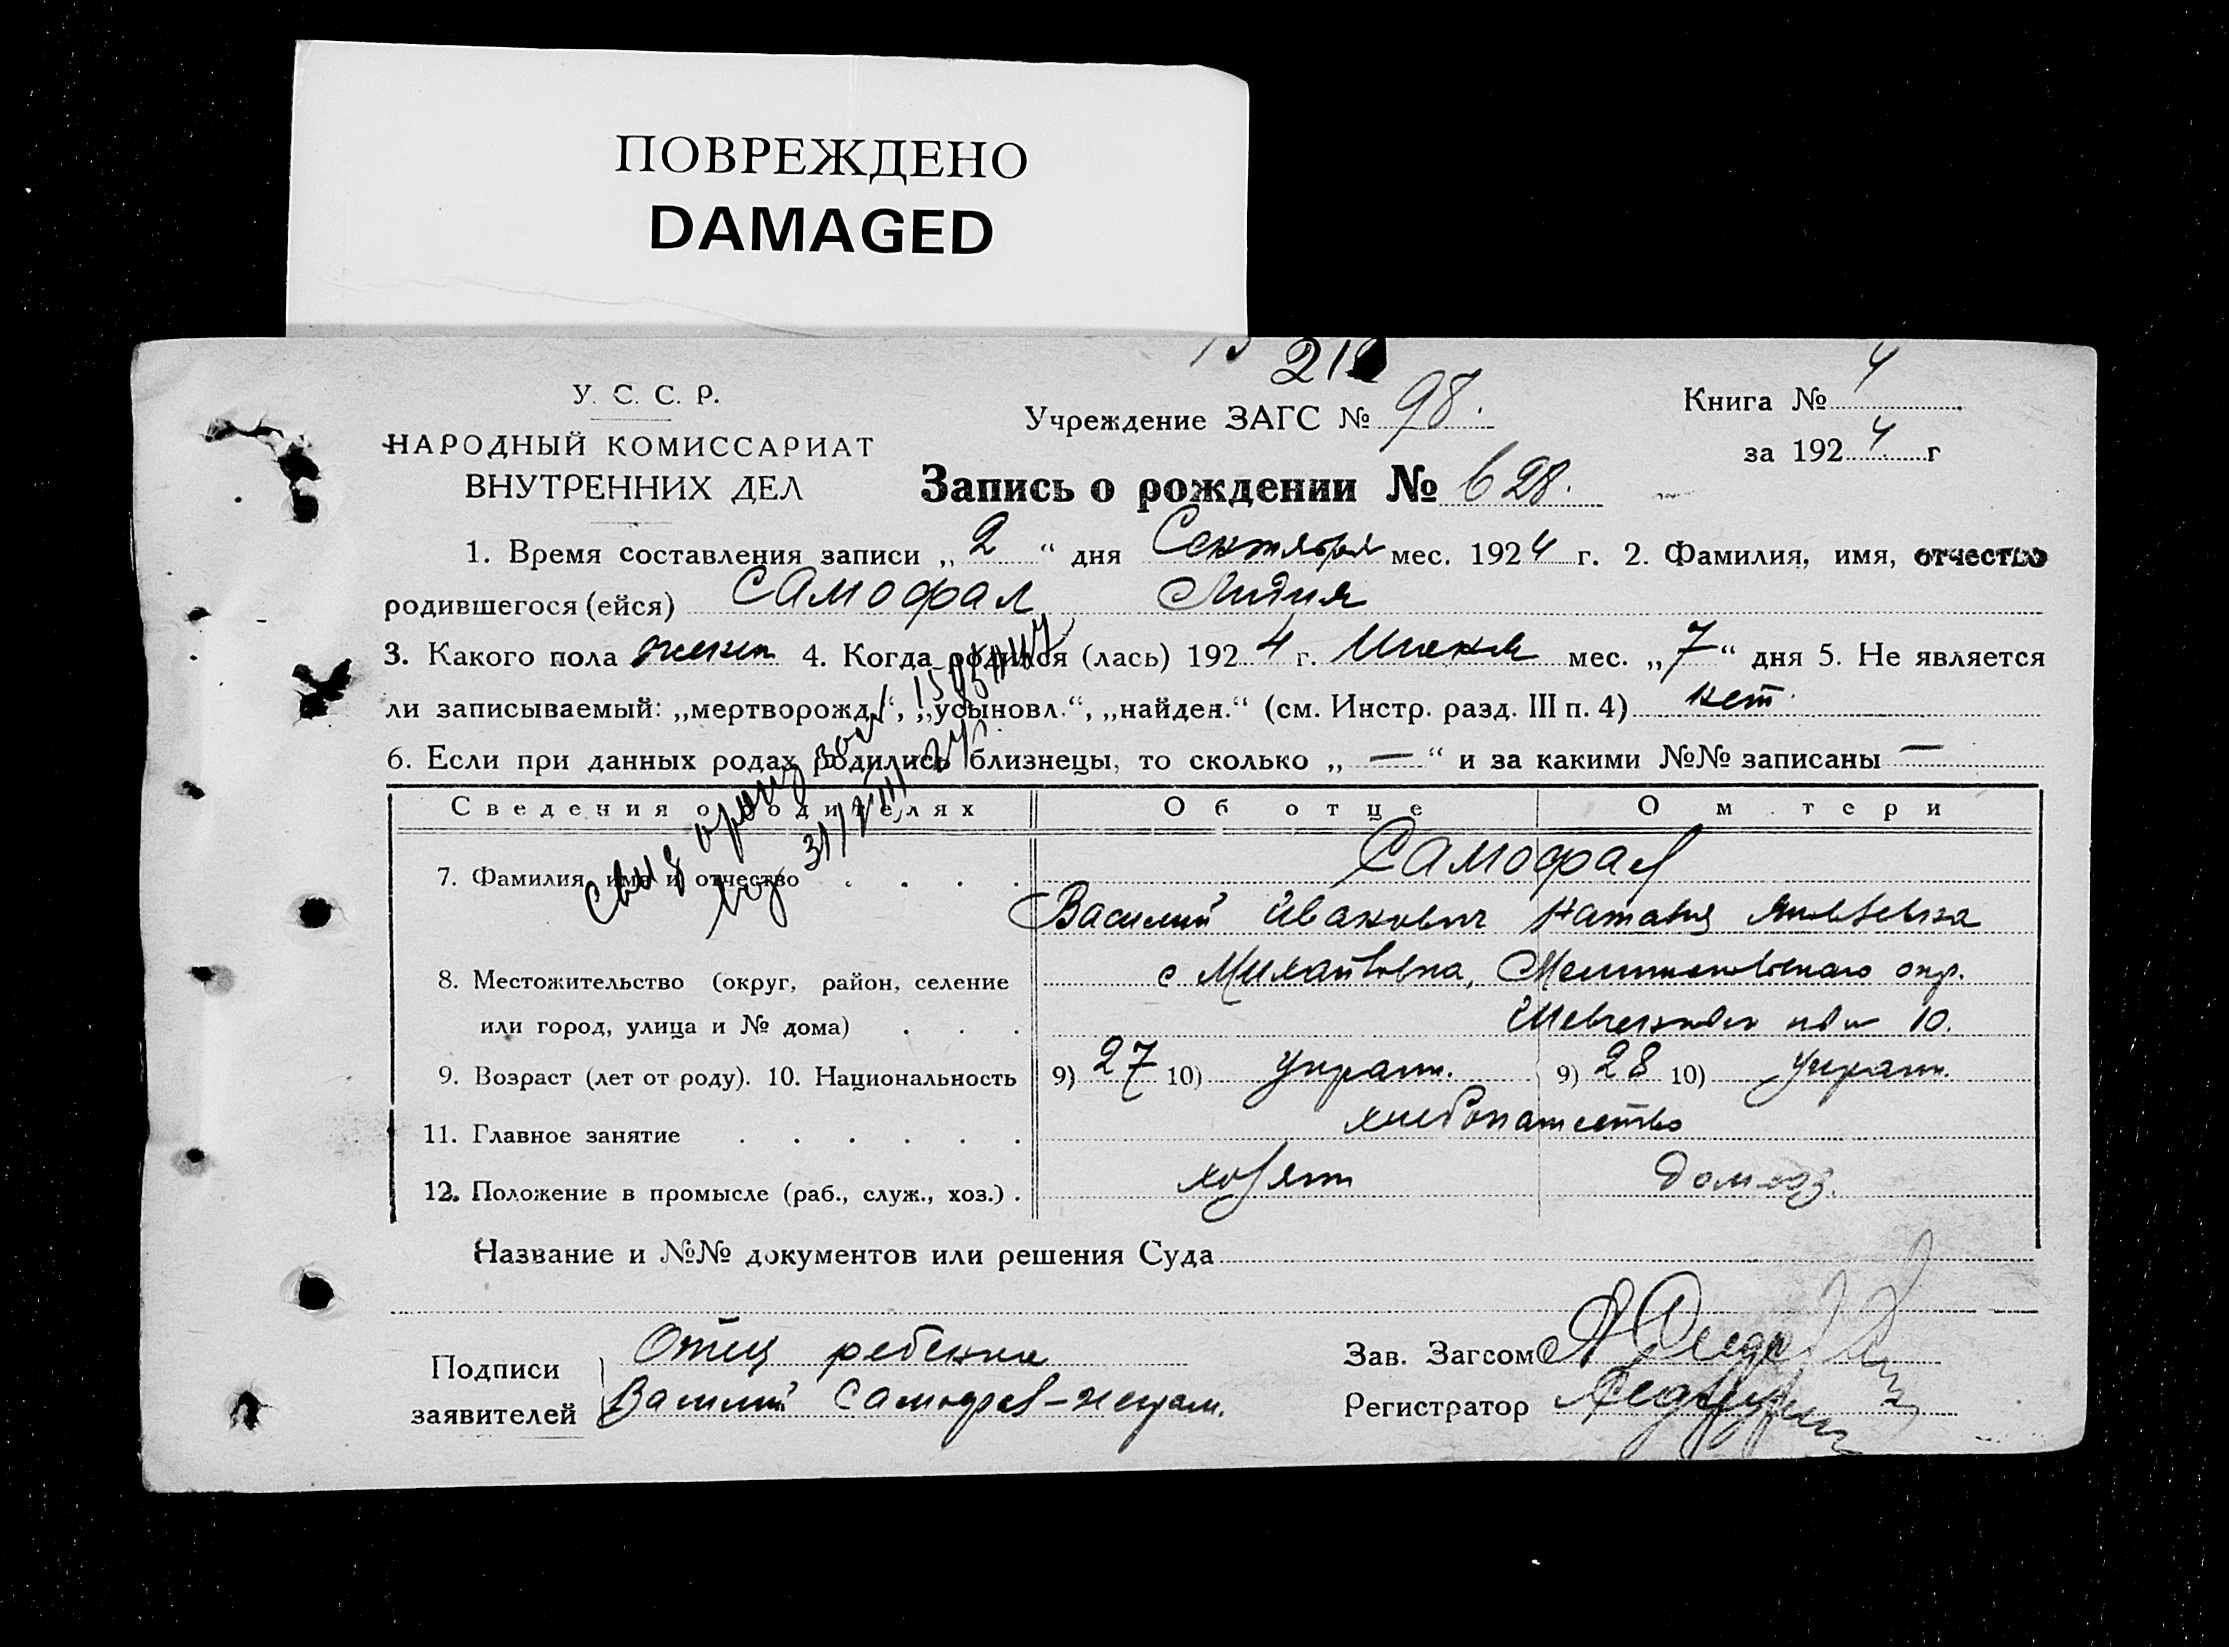 ПОВРЕЖДЕНО
DAMAGED
У. С. С. Р.
НАРОДНЫЙ КОМИССАРИАТ
ВНУТРЕННИХ ДЕЛ
21
Учреждение ЗАГС № 98.
Книга № 4
за 1924 г
Запись о рождении № 628.
1. Время составления записи „2“ дня Сентября мес. 1924 г. 2. Фамилия, имя, отчество
родившегося (ейся) Самофал Лидия
3. Какого пола женск 4. Когда родился (лась) 1924 г. Июня мес. „7“ дня 5. Не является
ли записываемый: „мертворожд.“, „усыновл.“, „найден.“ (см. Инстр. разд. III п. 4) нет
6. Если при данных родах родились близнецы, то сколько „—“ и за какими №№ записаны —
Сведения о родителях Об отце О м тери
7. Фамилия, имя и отчество Самофал
Василий Иванович Наталия Яковлевна
8. Местожительство (округ, район, селение с Михайловка, Мелитопольского окр.
или город, улица и № дома) 10.
9. Возраст (лет от роду). 10. Национальность 9) 27 10) украин. 9) 28 10) украин.
11. Главное занятие хлебопашество
12. Положение в промысле (раб., служ., хоз.) хозяин домохоз.
Название и №№ документов или решения Суда
Подписи заявителей Отец ребенка
Василий Самофал-неграм.
Зав. Загсом
Регистратор
свид 31/VIII